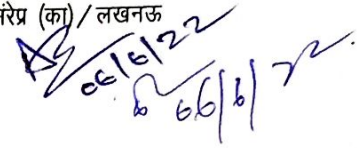 मंरेप्र (का) / लखनऊ
06/6/22
06/6/22